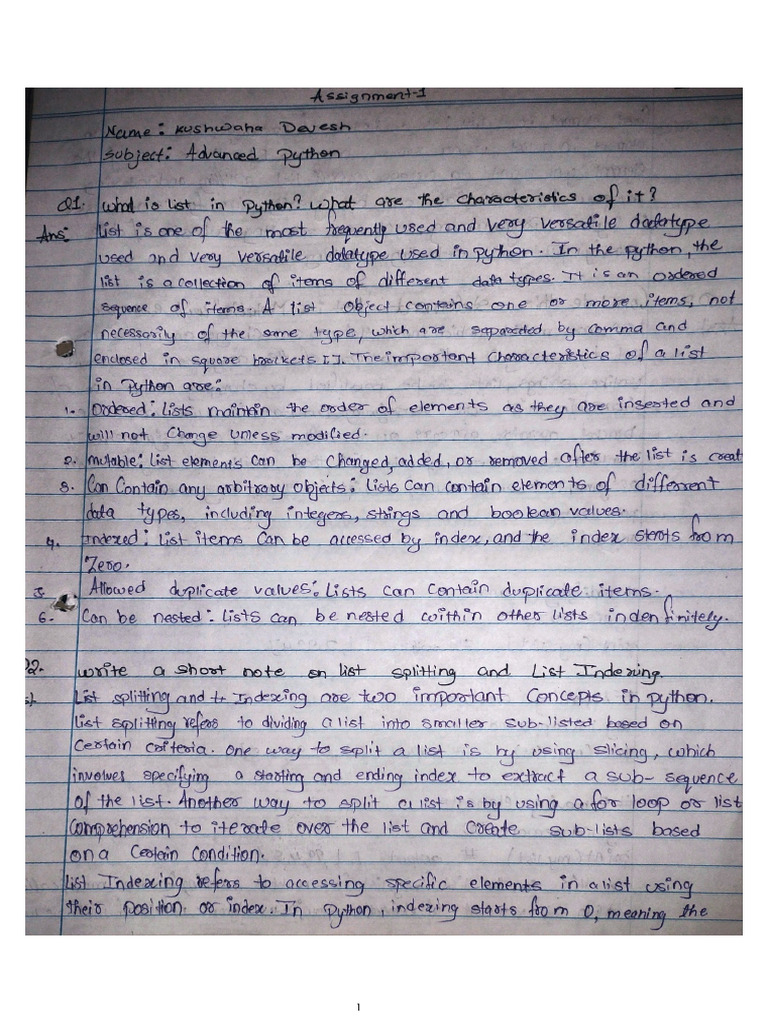 Assignment-1
Name: Kushwaha Devesh
Subject: Advanced Python
Q1. What is list in Python? What are the characteristics of it?
Ans: List is one of the most frequently used and very versatile datatype
used and very versatile datatype used in python. In the python, the
list is a collection of items of different data types. It is an ordered
sequence of items. A list object contains one or more items, not
necessarily of the same type, which are separated by comma and
enclosed in square brackets []. The important characteristics of a list
in Python are:
1. Ordered: Lists maintain the order of elements as they are inserted and
will not change unless modified.
2. Mutable: List elements can be changed, added, or removed after the list is creat
3. Can Contain any arbitrary objects: Lists can contain elements of different
data types, including integers, strings and boolean values.
4. Indexed: List items can be accessed by index, and the index starts from
Zero.
5. Allowed duplicate values: Lists can contain duplicate items.
6. Can be nested: Lists can be nested within other lists indenfinitely.
Q2. Write a short note on list splitting and List Indexing.
List splitting and Indexing are two important Concepts in python.
List splitting refers to dividing a list into smaller sub-listed based on
Certain criteria. One way to split a list is by using slicing, which
involves specifying a starting and ending index to extract a sub-sequence
of the list. Another way to split a list is by using a for loop or list
Comprehension to iterate over the list and create sub-lists based
on a certain condition.
List Indexing refers to accessing specific elements in a list using
their position or index. In Python, indexing starts from 0, meaning the
1